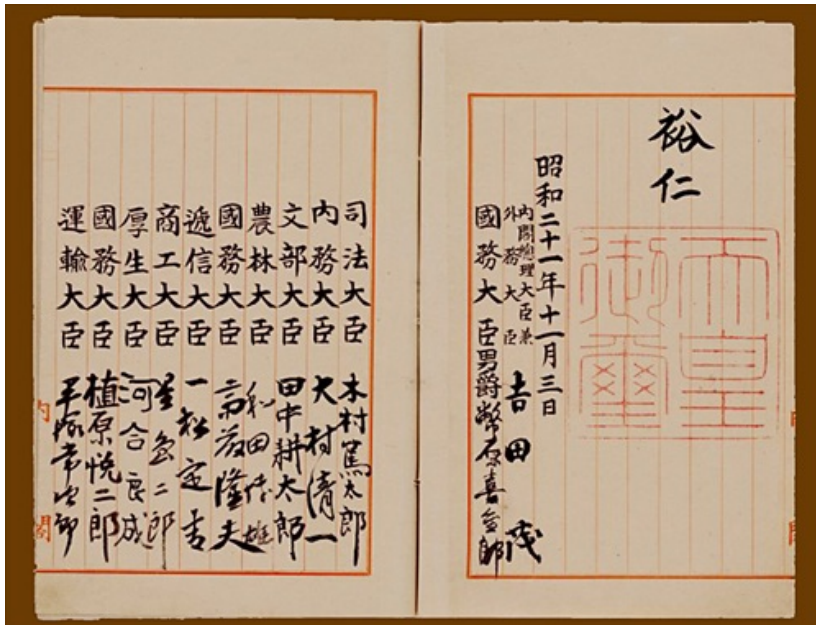 裕仁
天皇
御璽
昭和二十一年十一月三日
内閣總理大臣兼
外務大臣
吉田茂
國務大臣男爵幣原喜重郎
司法大臣木村篤太郎
内務大臣大村清一
文部大臣田中耕太郎
農林大臣和田博雄
國務大臣斎藤隆夫
遞信大臣一松定吉
商工大臣星島二郎
厚生大臣河合良成
國務大臣植原悦二郎
運輸大臣平塚常次郎
内閣